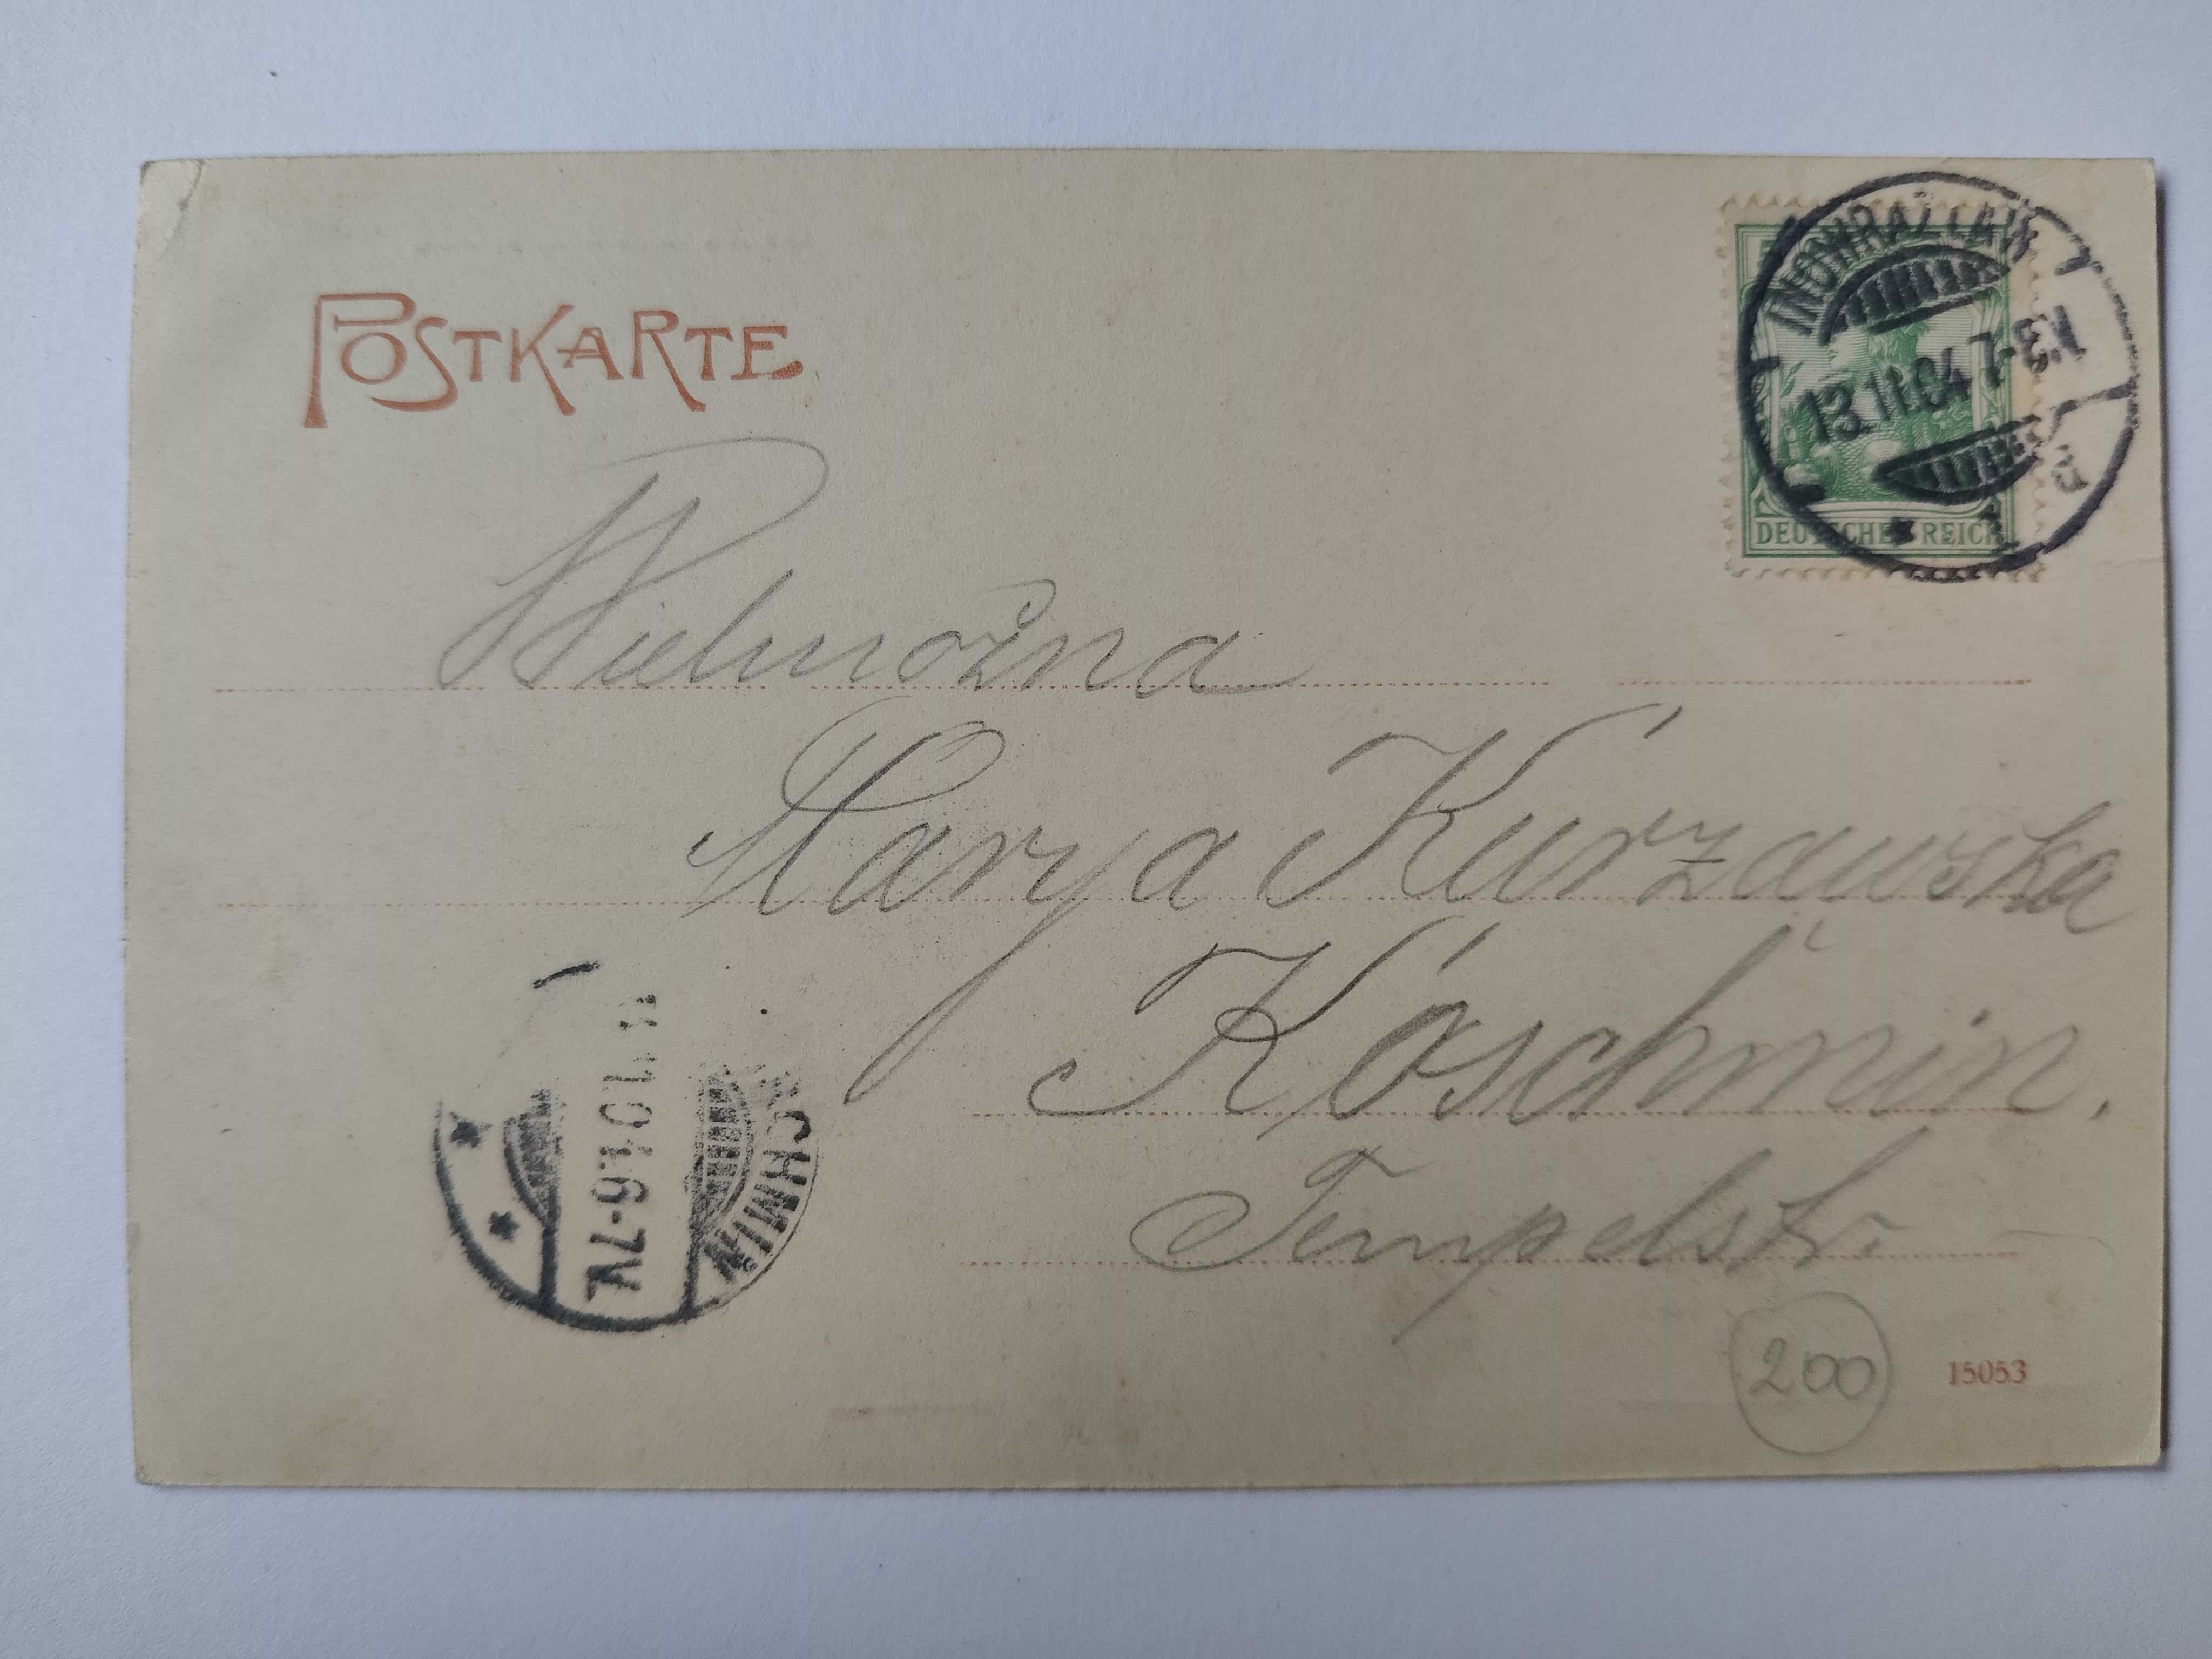 POSTKARTE
INOWRAZLAW
13.11.04 7-8.V.
DEUTSCHES REICH
Wielmożna
Marya Kurzawska
Koschmin.
Tempelstr.
SCHMIN
6-7V.
200
15053